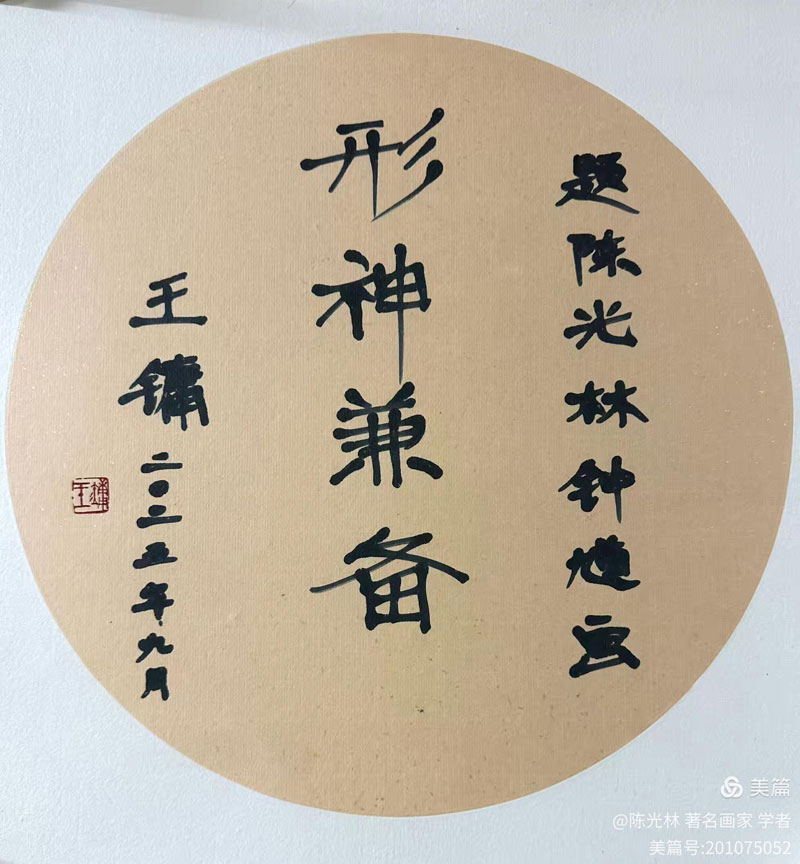 题陈光林钟馗画
形神兼备
王镛
二〇二五年九月
王镛
美篇
@陈光林 著名画家 学者
美篇号:201075052